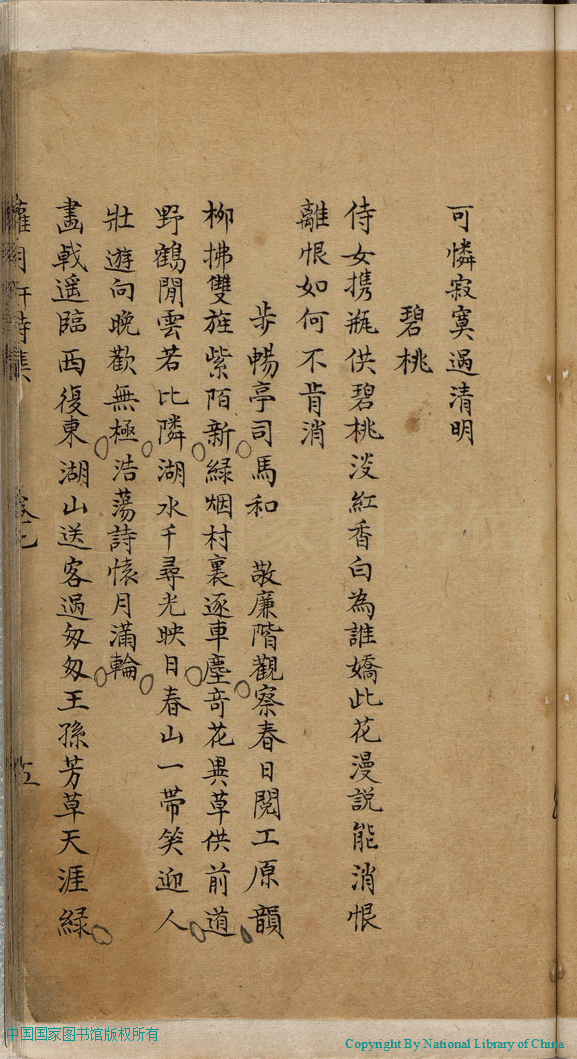 可憐寂寞過清明
碧桃
侍女携瓶供碧桃淡紅香白為誰嬌此花漫說能消恨
離恨如何不肯消
步暢亭司馬和　敬廉階觀察春日閱工原韻
柳拂雙旌紫陌新綠烟村裏逐車塵奇花異草供前道
野鶴閒雲若比隣湖水千尋光映日春山一帶笑迎人
壯遊向晚歡無極浩蕩詩懷月滿輪
畫戟遥臨西復東湖山送客過匆匆王孫芳草天涯綠
月軒詩集
中国国家图书馆版权所有
Copyright By National Library of China